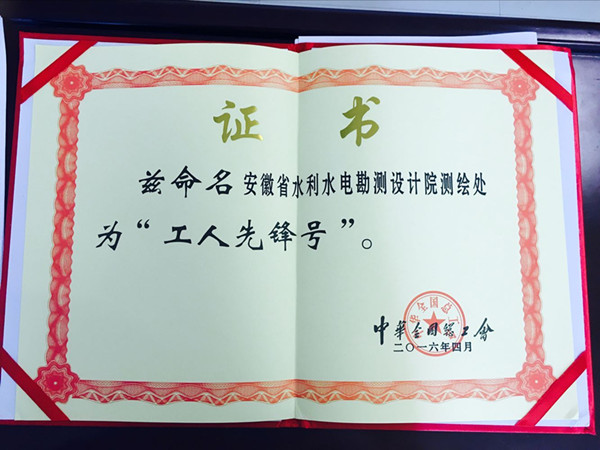 证书
兹命名安徽省水利水电勘测设计院测绘处
为“工人先锋号”。
中华全国总工会
二〇一六年四月